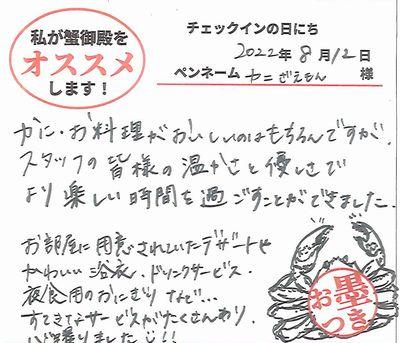 私が蟹御殿を
オススメ
します！
チェックインの日にち
2022年 8月12日
ペンネーム カニざえもん 様
かに・お料理がおいしいのはもちろんですが、
スタッフの皆様の温かさと優しさで
より楽しい時間を過ごすことができました。
お部屋に用意されていたデザートや
かわいい浴衣・ドリンクサービス・
夜食用のおにぎりなど…
すてきなサービスがたくさんあり、
お墨
つき